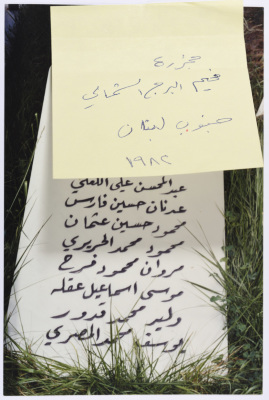 مجزرة
مخيم البرج الشمالي
جنوب لبنان
١٩٨٢
عبد المحسن علي اللعلي
عدنان حسين فارس
محمود حسين عثمان
محمود محمد الحريري
مروان محمود فرج
موسى اسماعيل عقله
وليد محمد قدور
يوسف محمد المصري